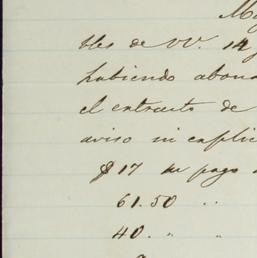 My
tles de VV. 14
habiendo abona
el extracto de
aviso in esplic
$17 en pago
61.50 "
40. " "